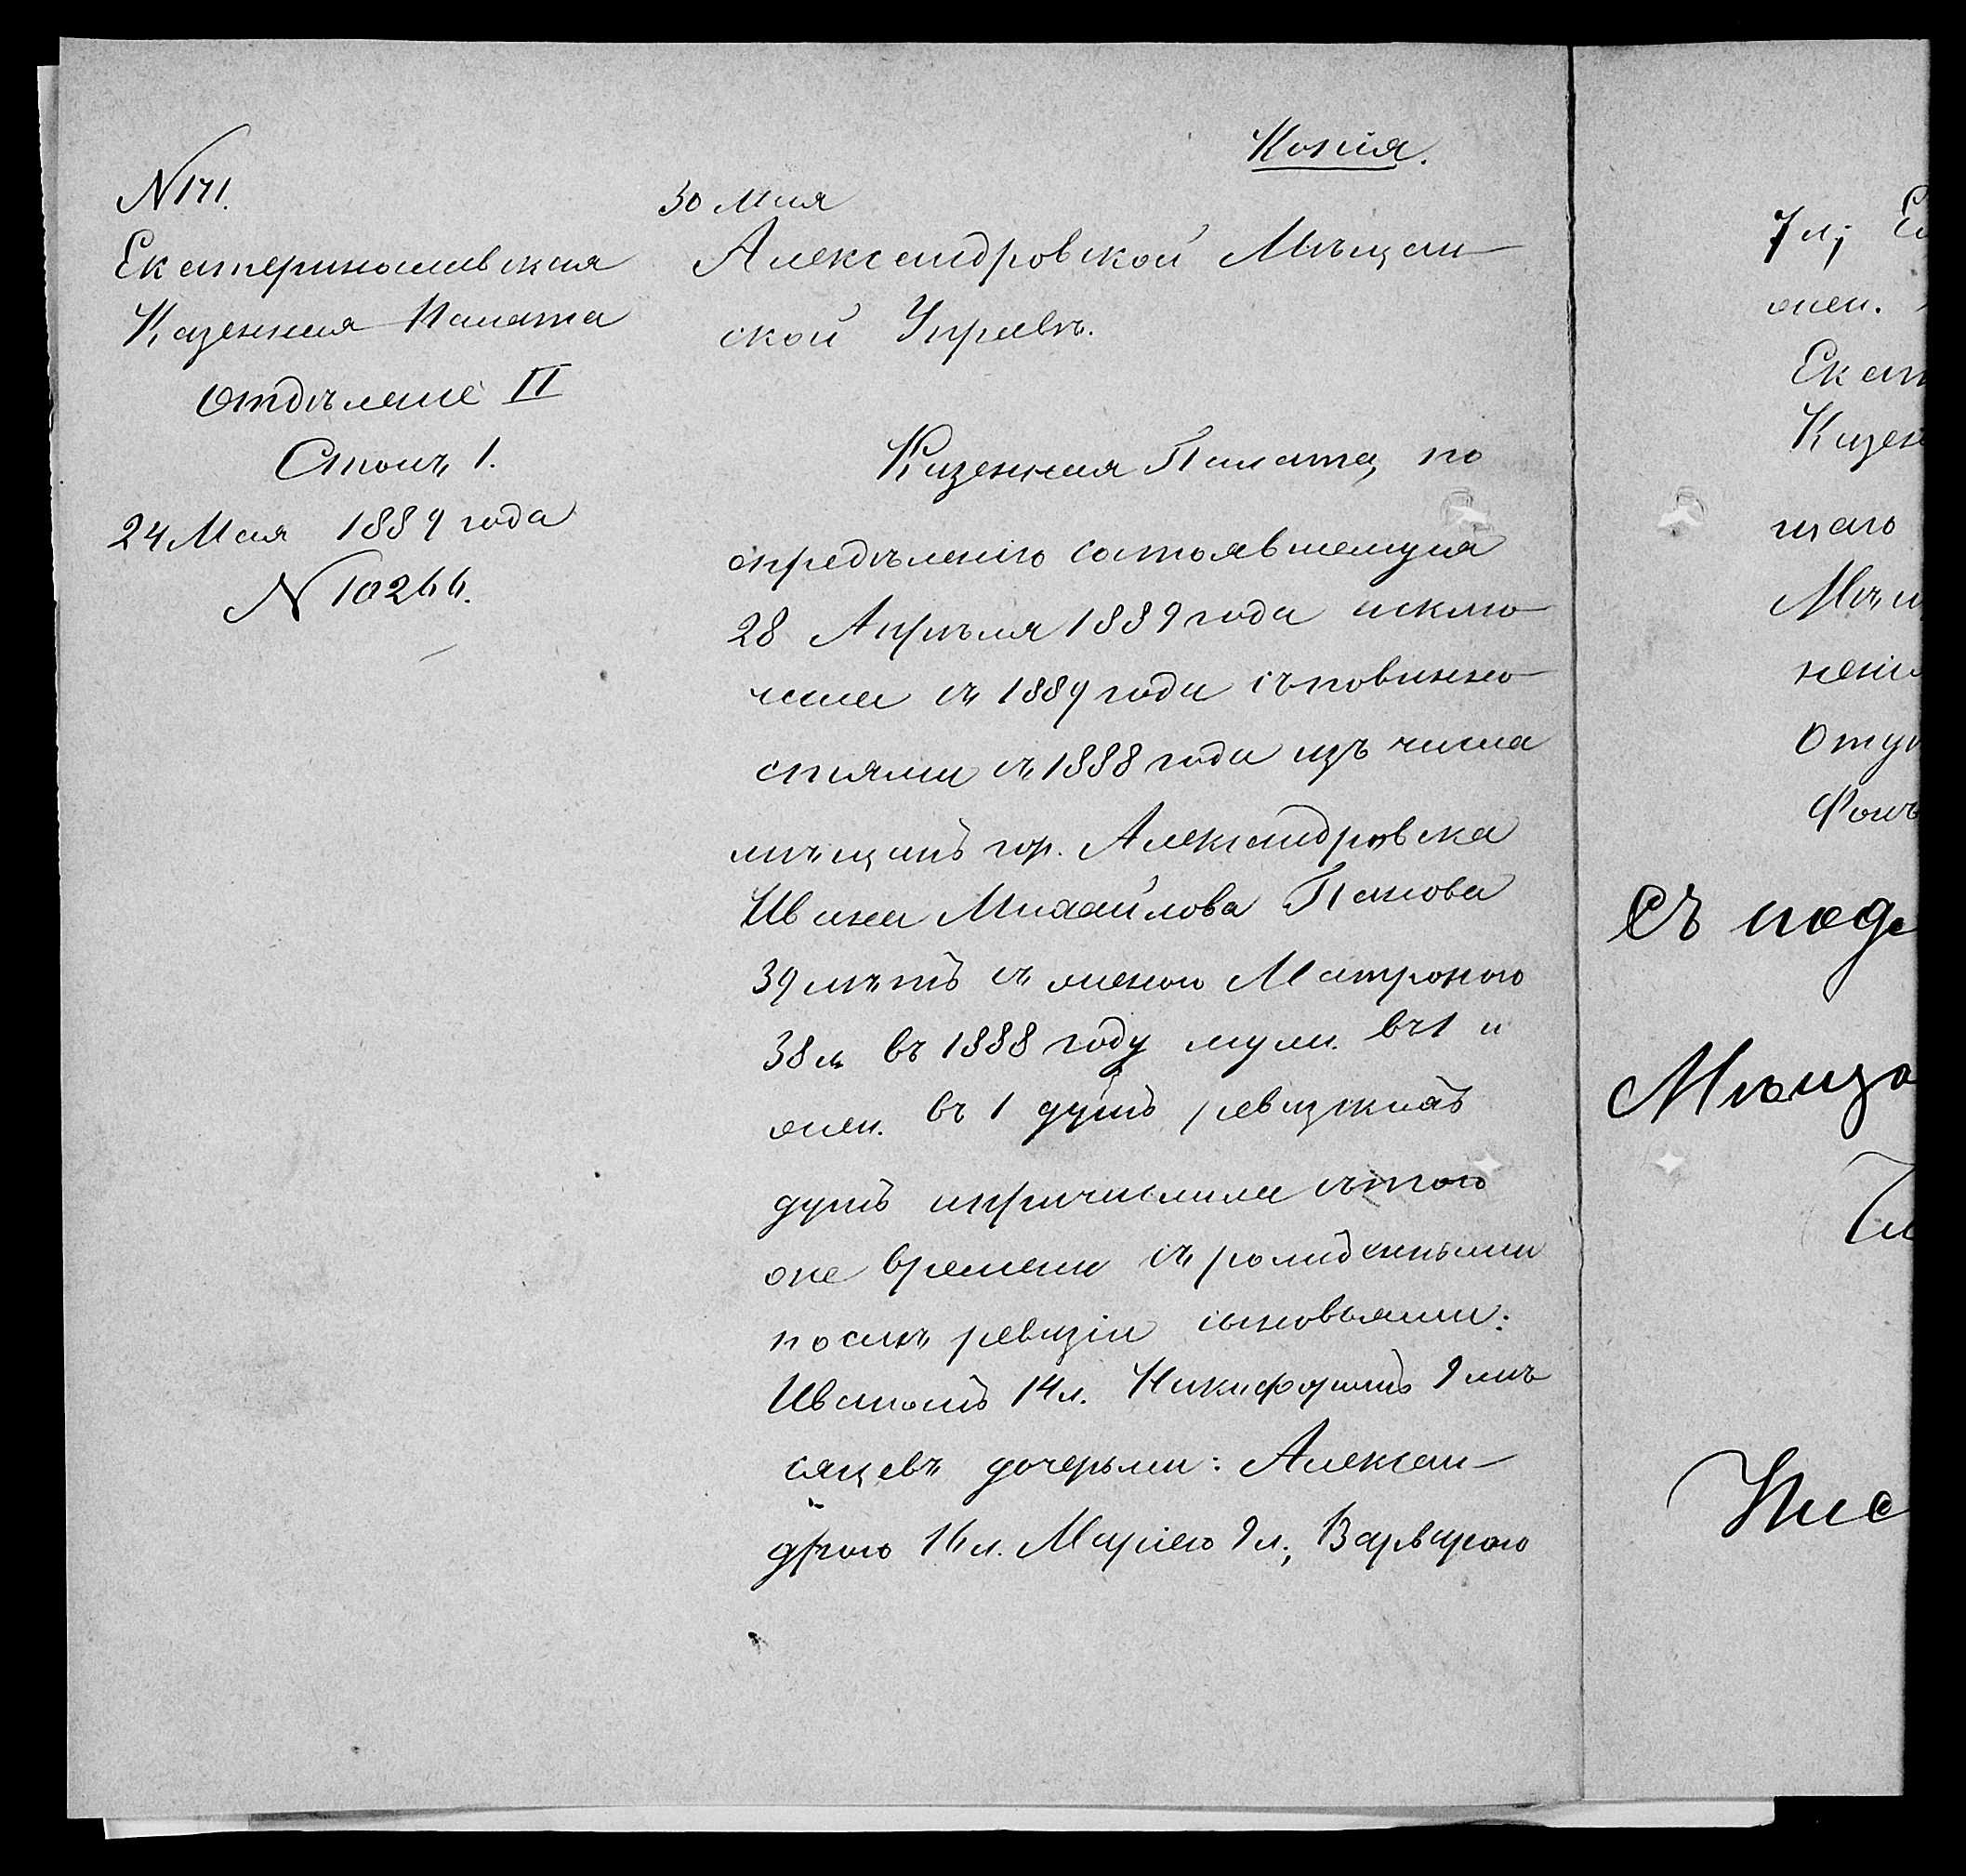 Копія.
N 171.
Екатеринославская
Казенная Палата
Отдѣленіе II
Столъ 1.
24 Мая 1889 года
N 10266.
30 Мая
Александровской Мѣщан-
ской Управѣ.
Казенная Палата, по
опредѣленію состоявшемуся
28 Апрѣля 1889 года исклю-
чила съ 1889 года съ повинно-
стями съ 1888 года изъ числа
мѣщанъ гор. Александровска
Ивана Михайлова Панова
39 лѣтъ съ женою Матроною
38 л. въ 1888 году муж. въ 1 и
жен. въ 1 душъ ревизскихъ
душъ и причислила съ того
же времени съ рожденными
послѣ ревизіи сыновьями:
Иваномъ 14 л. Никифоромъ 9 мѣ-
сяцевъ дочерьми: Алексан-
дрою 16 л. Маріею 9 л., Варварою
7 л.;
жен.
Екат
Казен
щаго
Мѣщ
нені
Отум
Съ подл
Мѣща
Пис